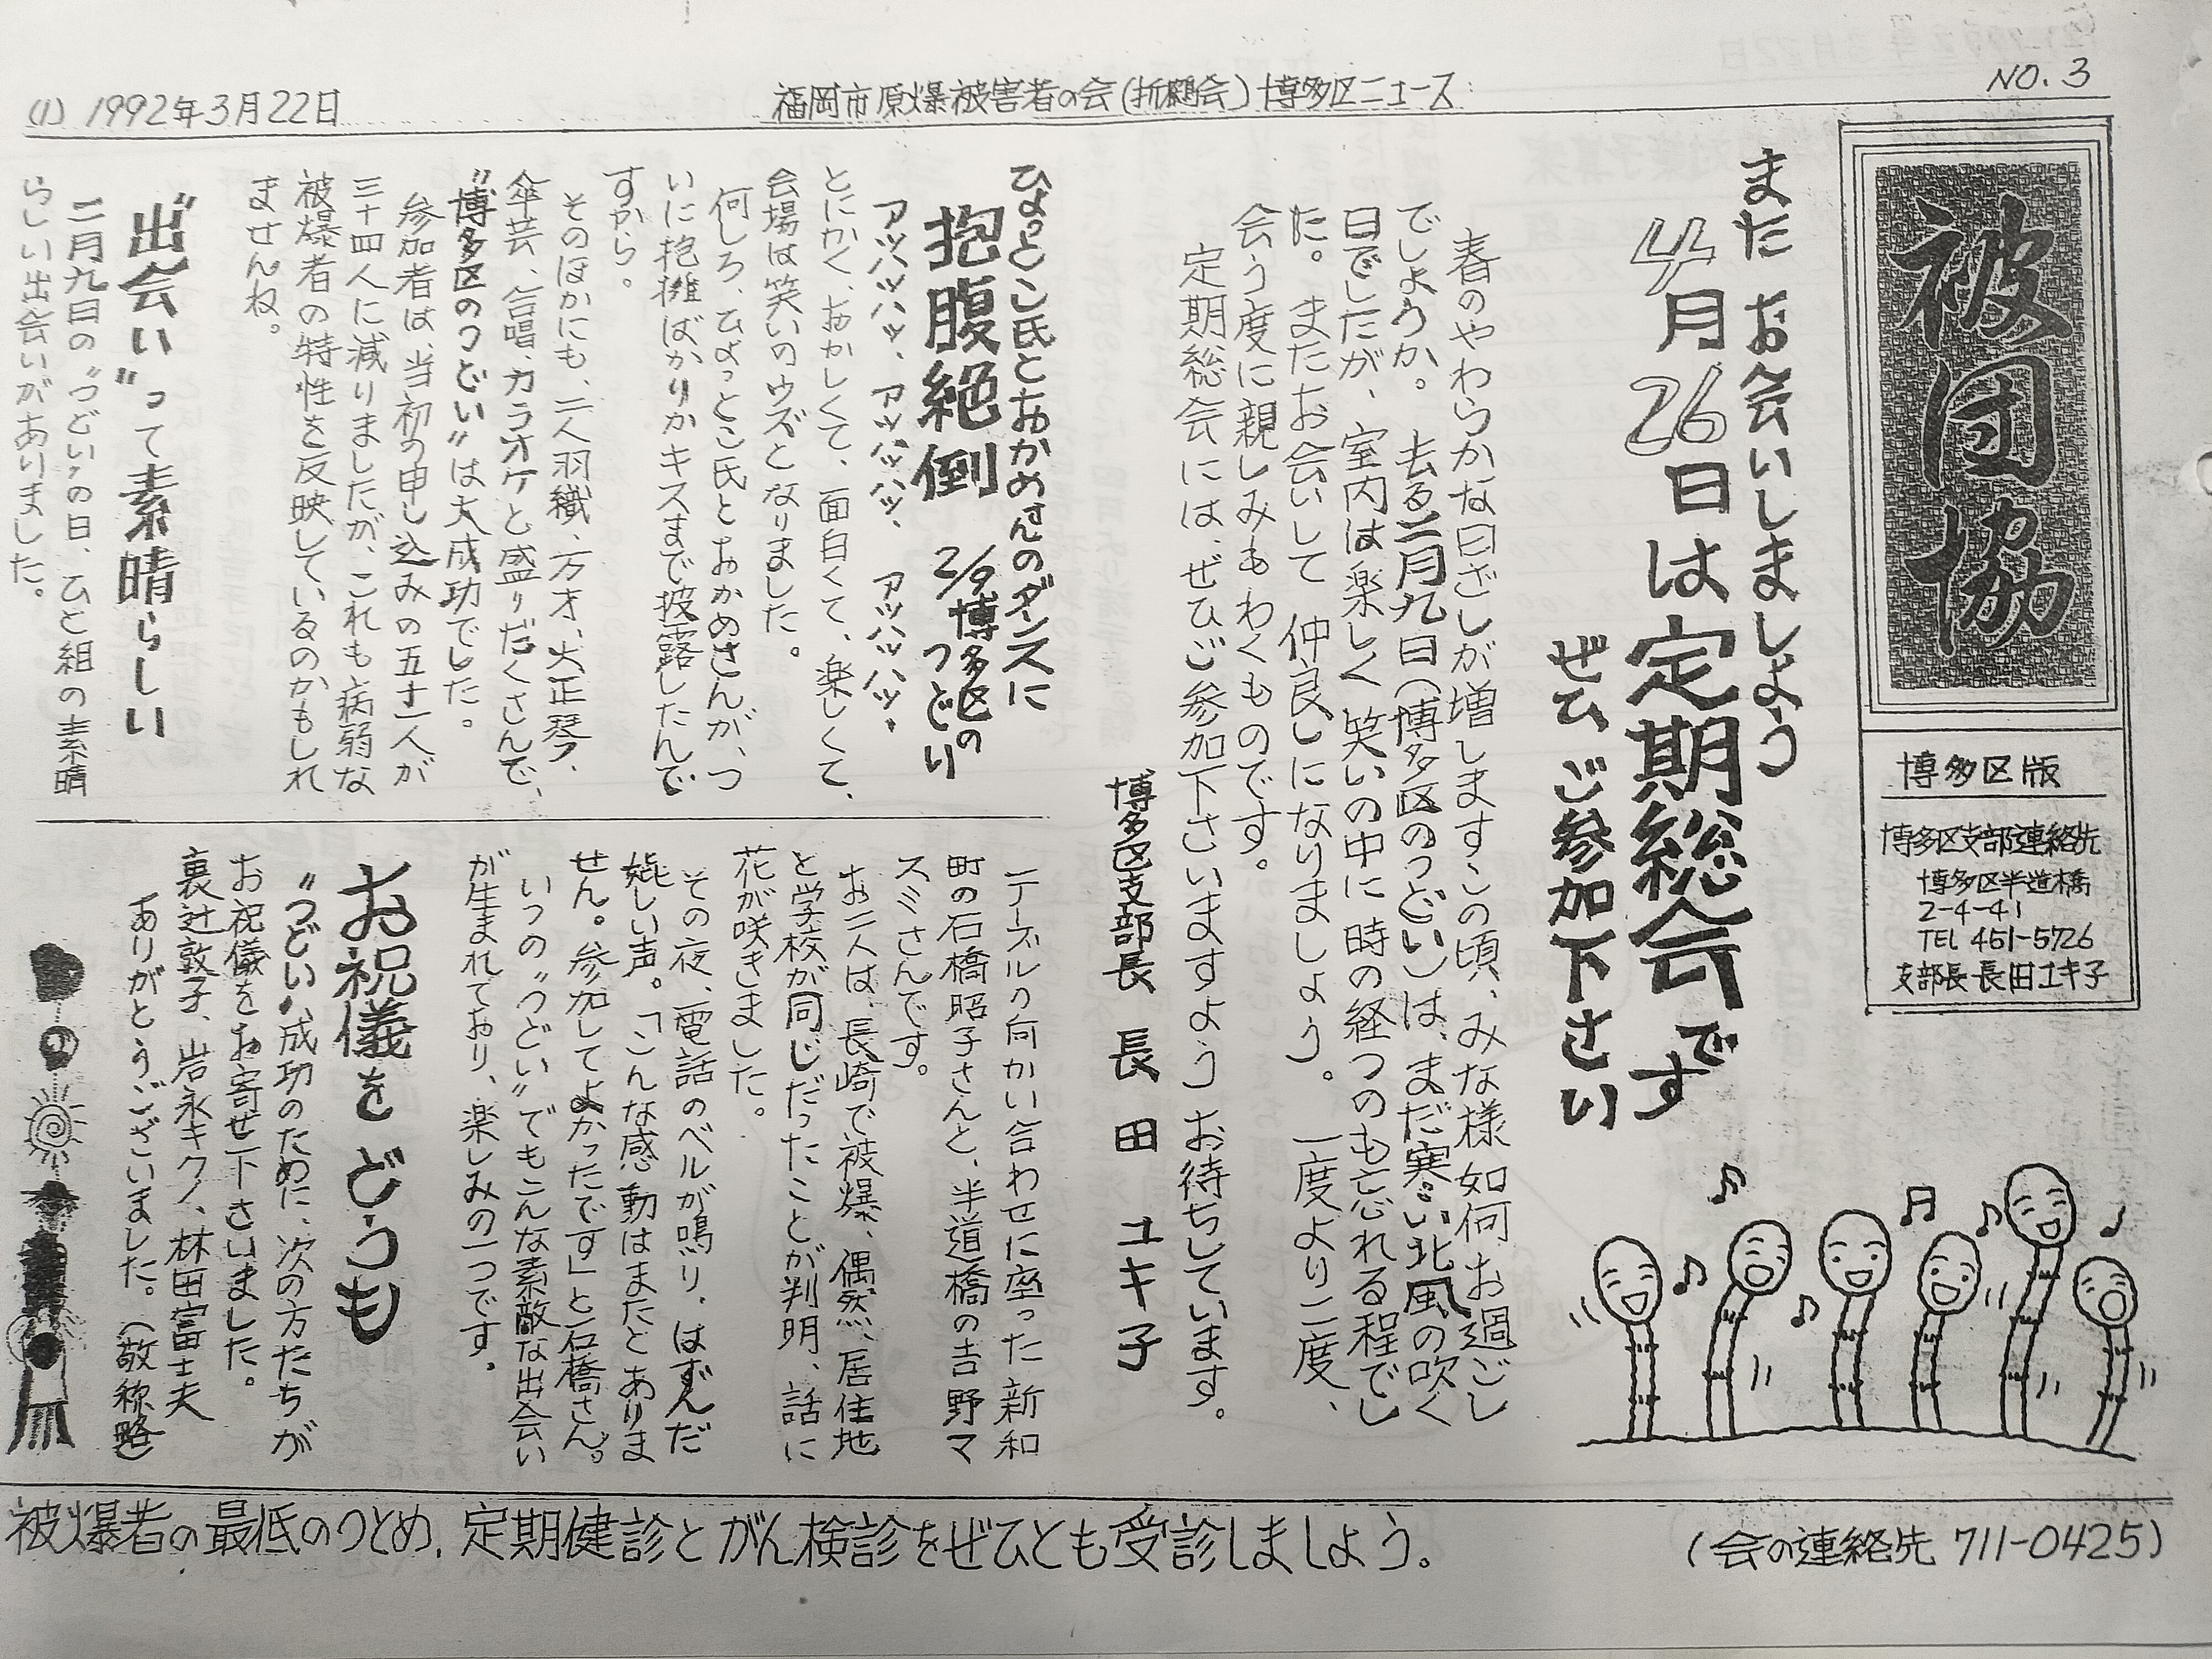 (1) 1992年3月22日
福岡市原爆被害者の会(折鶴会)博多区ニュース
NO.3
被団協
博多区版
博多区支部連絡先
博多区半道橋
2-4-41
TEL 451-5726
支部長 長田ユキ子
また お会いしましょう
4月26日は定期総会です
ぜひ ご参加下さい
春のやわらかな日ざしが増しますこの頃、みな様如何お過ごし
でしょうか。去る二月九日(博多区のつどい)は、まだ寒い北風の吹く
日でしたが、室内は楽しく笑いの中に時の経つのも忘れる程でし
た。またお会いして 仲良しになりましょう。一度より二度、
会う度に親しみもわくものです。
定期総会には、ぜひご参加下さいますよう お待ちしています。
博多区支部長 長田 ユキ子
ひょっとこ氏とおかめさんのダンスに
抱腹絶倒 2/9博多区の
つどい
アッハッハッ、アッハッハッ、アッハッハッ、
とにかく、おかしくて、面白くて、楽しくて、
会場は笑いのウズとなりました。
何しろ、ひょっとこ氏とおかめさんが、つ
いに抱擁ばかりかキスまで披露したんで
すから。
そのほかにも、二人羽織、万才、大正琴、
傘芸、合唱、カラオケと盛りだくさんで、
“博多区のつどい”は大成功でした。
参加者は、当初の申し込みの五十一人が
三十四人に減りましたが、これも病弱な
被爆者の特性を反映しているのかもしれ
ませんね。
“出会い”って素晴らしい
二月九日の“つどい”の日、ひと組の素晴
らしい出会いがありました。
テーブルの向かい合わせに座った新和
町の石橋昭子さんと、半道橋の吉野マ
スミさんです。
お二人は、長崎で被爆、偶然、居住地
と学校が同じだったことが判明、話に
花が咲きました。
その夜、電話のベルが鳴り、はずんだ
嬉しい声。「こんな感動はまたとありま
せん。参加してよかったです」と石橋さん。
いつの“つどい”でもこんな素敵な出会い
が生まれており、楽しみの一つです。
お祝儀を どうも
“つどい”成功のために、次の方たちが
お祝儀をお寄せ下さいました。
裏辻敦子、岩永キクノ、林田富士夫
ありがとうございました。(敬称略)
被爆者の最低のつとめ、定期健診とがん検診をぜひとも受診しましょう。
(会の連絡先 711-0425)